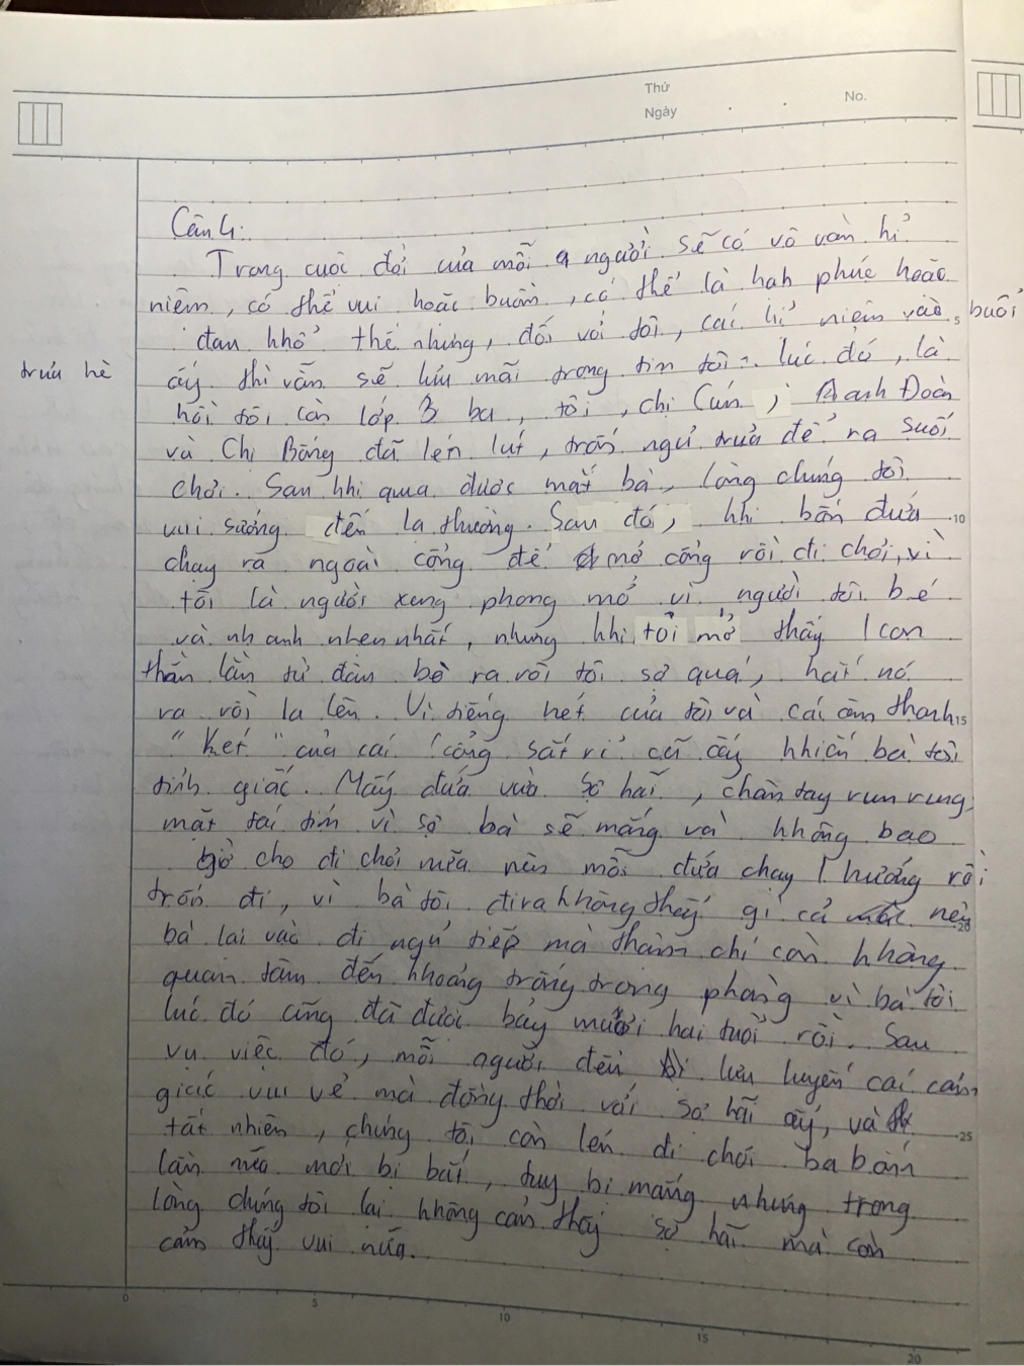 Thứ
Ngày . . No.
Câu 4:
Trong cuộc đời của mỗi người sẽ có vô vàn kỉ
niệm, có thể vui hoặc buồn, có thể là hạh phúc hoặc
đau khổ thế nhưng, đối với tôi, cái kỉ niệm vào buổi
trưa hè ấy thì vẫn sẽ lưu mãi trong tim tôi. lúc đó, là
hồi tôi còn lớp 3 ba, tôi, chị Cún, Aanh Đoàn
và Chị Bống đã lén lút, trốn ngủ trưa để ra suối
chơi. Sau khi qua được mắt bà, lòng chúng tôi
vui sướng đến lạ thường. Sau đó, khi bốn đứa
chạy ra ngoài cổng để mở cổng rồi đi chơi, vì
tôi là người xung phong mở vì người tôi bé
và nhanh nhẹn nhất, nhưng khi tôi mở thấy 1 con
thằn lằn từ đâu bò ra rồi tôi sợ quá, hất nó
ra rồi la lên. Vì tiếng hét của tôi và cái âm thanh
"két" của cái cổng sắt rỉ cũ ấy khiến bà tôi
tỉnh giấc. Mấy đứa vừa sợ hãi, chân tay run rung,
mặt tái tím vì sợ bà sẽ mắng và không bao
giờ cho đi chơi nữa nên mỗi đứa chạy 1 hướng rồi
trốn đi, vì bà tôi đi ra không thấy gì cả nên
bà lại vào đi ngủ tiếp mà thậm chí còn không
quan tâm đến khoảng trống trong phòng vì bà tôi
lúc đó cũng đã được bảy mươi hai tuổi rồi. Sau
vụ việc đó, mỗi người đều lưu luyến cái cảm
giác vui vẻ mà đồng thời với sợ hãi ấy, và
tất nhiên, chúng tôi còn lén đi chơi ba bốn
lần nữa mới bị bắt, tuy bị mắng nhưng trong
lòng chúng tôi lại không cảm thấy sợ hãi mà còn
cảm thấy vui nữa.